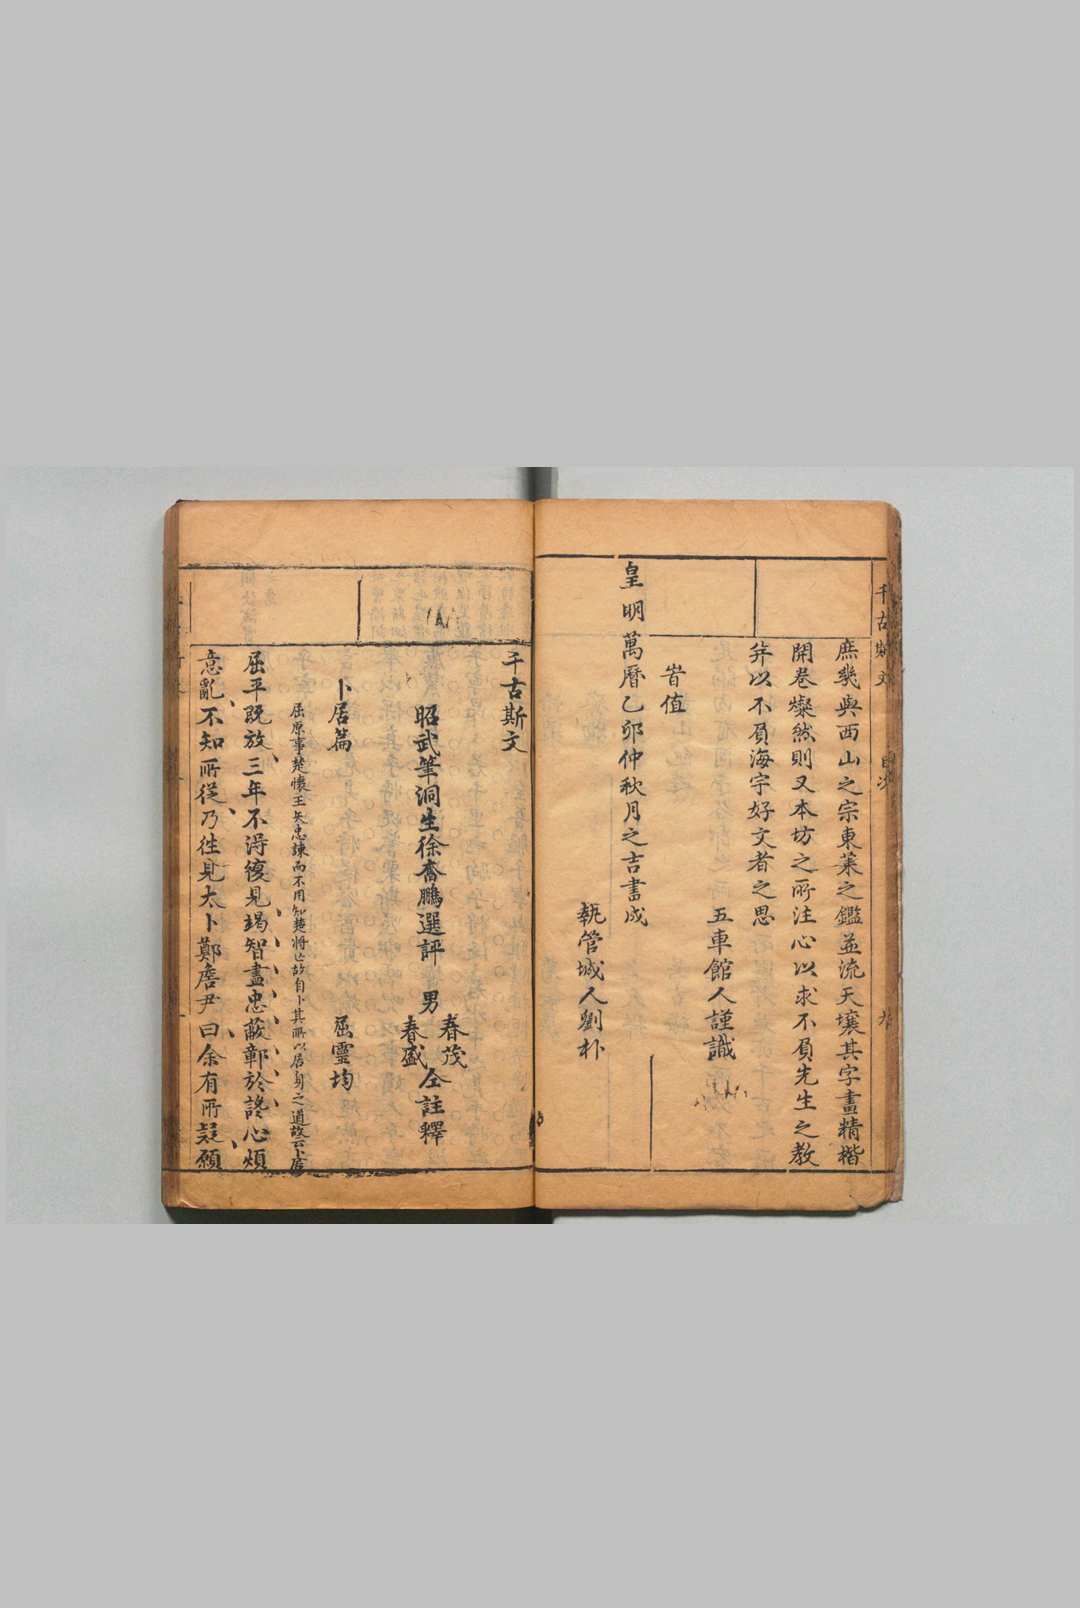 庶幾與西山之宗東萊之鑑並流天壤其字畫精楷
開卷燦然則又本坊之所注心以求不負先生之教
并以不負海宇好文者之思
五車館人謹識
旹值
皇明萬曆乙卯仲秋月之吉書成
執管城人劉朴
千古斯文
昭武筆洞生徐奮鵬選評 男 春茂 春盛 仝註釋
卜居篇 屈靈均
屈原事楚懷王矢忠諫而不用知楚將亡故自卜其所以居身之道故云卜居
屈平既放三年不得復見竭智盡忠蔽鄣於讒心煩
意亂不知所從乃往見太卜鄭詹尹曰余有所疑願